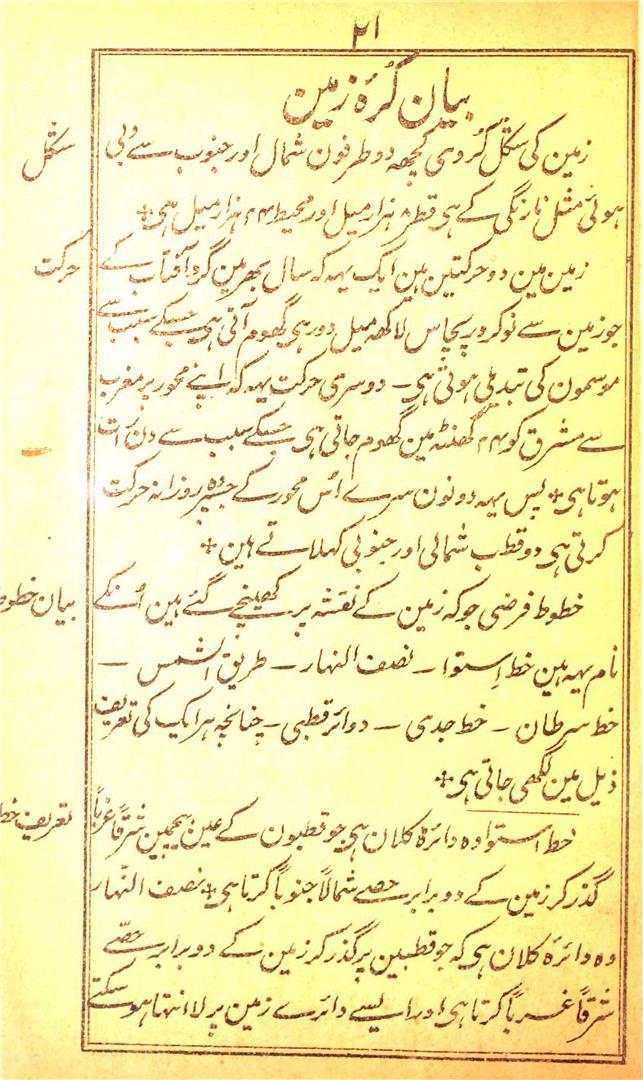 ۲۱
بیان کُرۂ زمین
زمین کی شکل کُروی کچھہ دو طرفون شمال اور جنوب سے دبی
شکل
ہوئی مثل نارنگی کے ہی قطر ۸ ہزار میل اور محیط ۲۴ ہزار میل ہی
زمین مین دو حرکتین ہین ایک یہہ کہ سال بھر مین گرد آفتاب کے
حرکت
جو زمین سے نو کرور پچاس لاکھہ میل دور ہی گھوم آتی ہی جسکے سبب سے
موسمون کی تبدیلی ہوتی ہی ۔ دوسری حرکت یہہ کہ اپنے محور پر مغرب
سے مشرق کو ۲۴ گھنٹہ مین گھوم جاتی ہی جسکے سبب سے دن رات
ہوتا ہی پس یہہ دونون سرے اُس محور کے جسپر وہ روزانہ حرکت
کرتی ہی دو قطب شمالی اور جنوبی کہلاتے ہین
خطوط فرضی جو کہ زمین کے نقشہ پر کھینچے گئے ہین اُنکے
بیان خطوط
نام یہہ ہین خط اِستوا ۔ نصف النہار ۔ طریق الشمس ۔
خط سرطان ۔ خط جدی ۔ دوائر قطبی ۔ چنانچہ ہر ایک کی تعریف
ذیل مین لکھی جاتی ہی
خط استوا وہ دائرۂ کلان ہی جو قطبون کے عین بیچمین شرقاً غرباً
تعریف خط
گذر کر زمین کے دو برابر حصے شمالاً جنوباً کرتا ہی نصف النّہار
وہ دائرۂ کلان ہی کہ جو قطبین پر گذر کر زمین کے دو برابر حصّے
شرقاً غرباً کرتا ہی اور ایسے دائرے زمین پر لا انتہا ہو سکتے